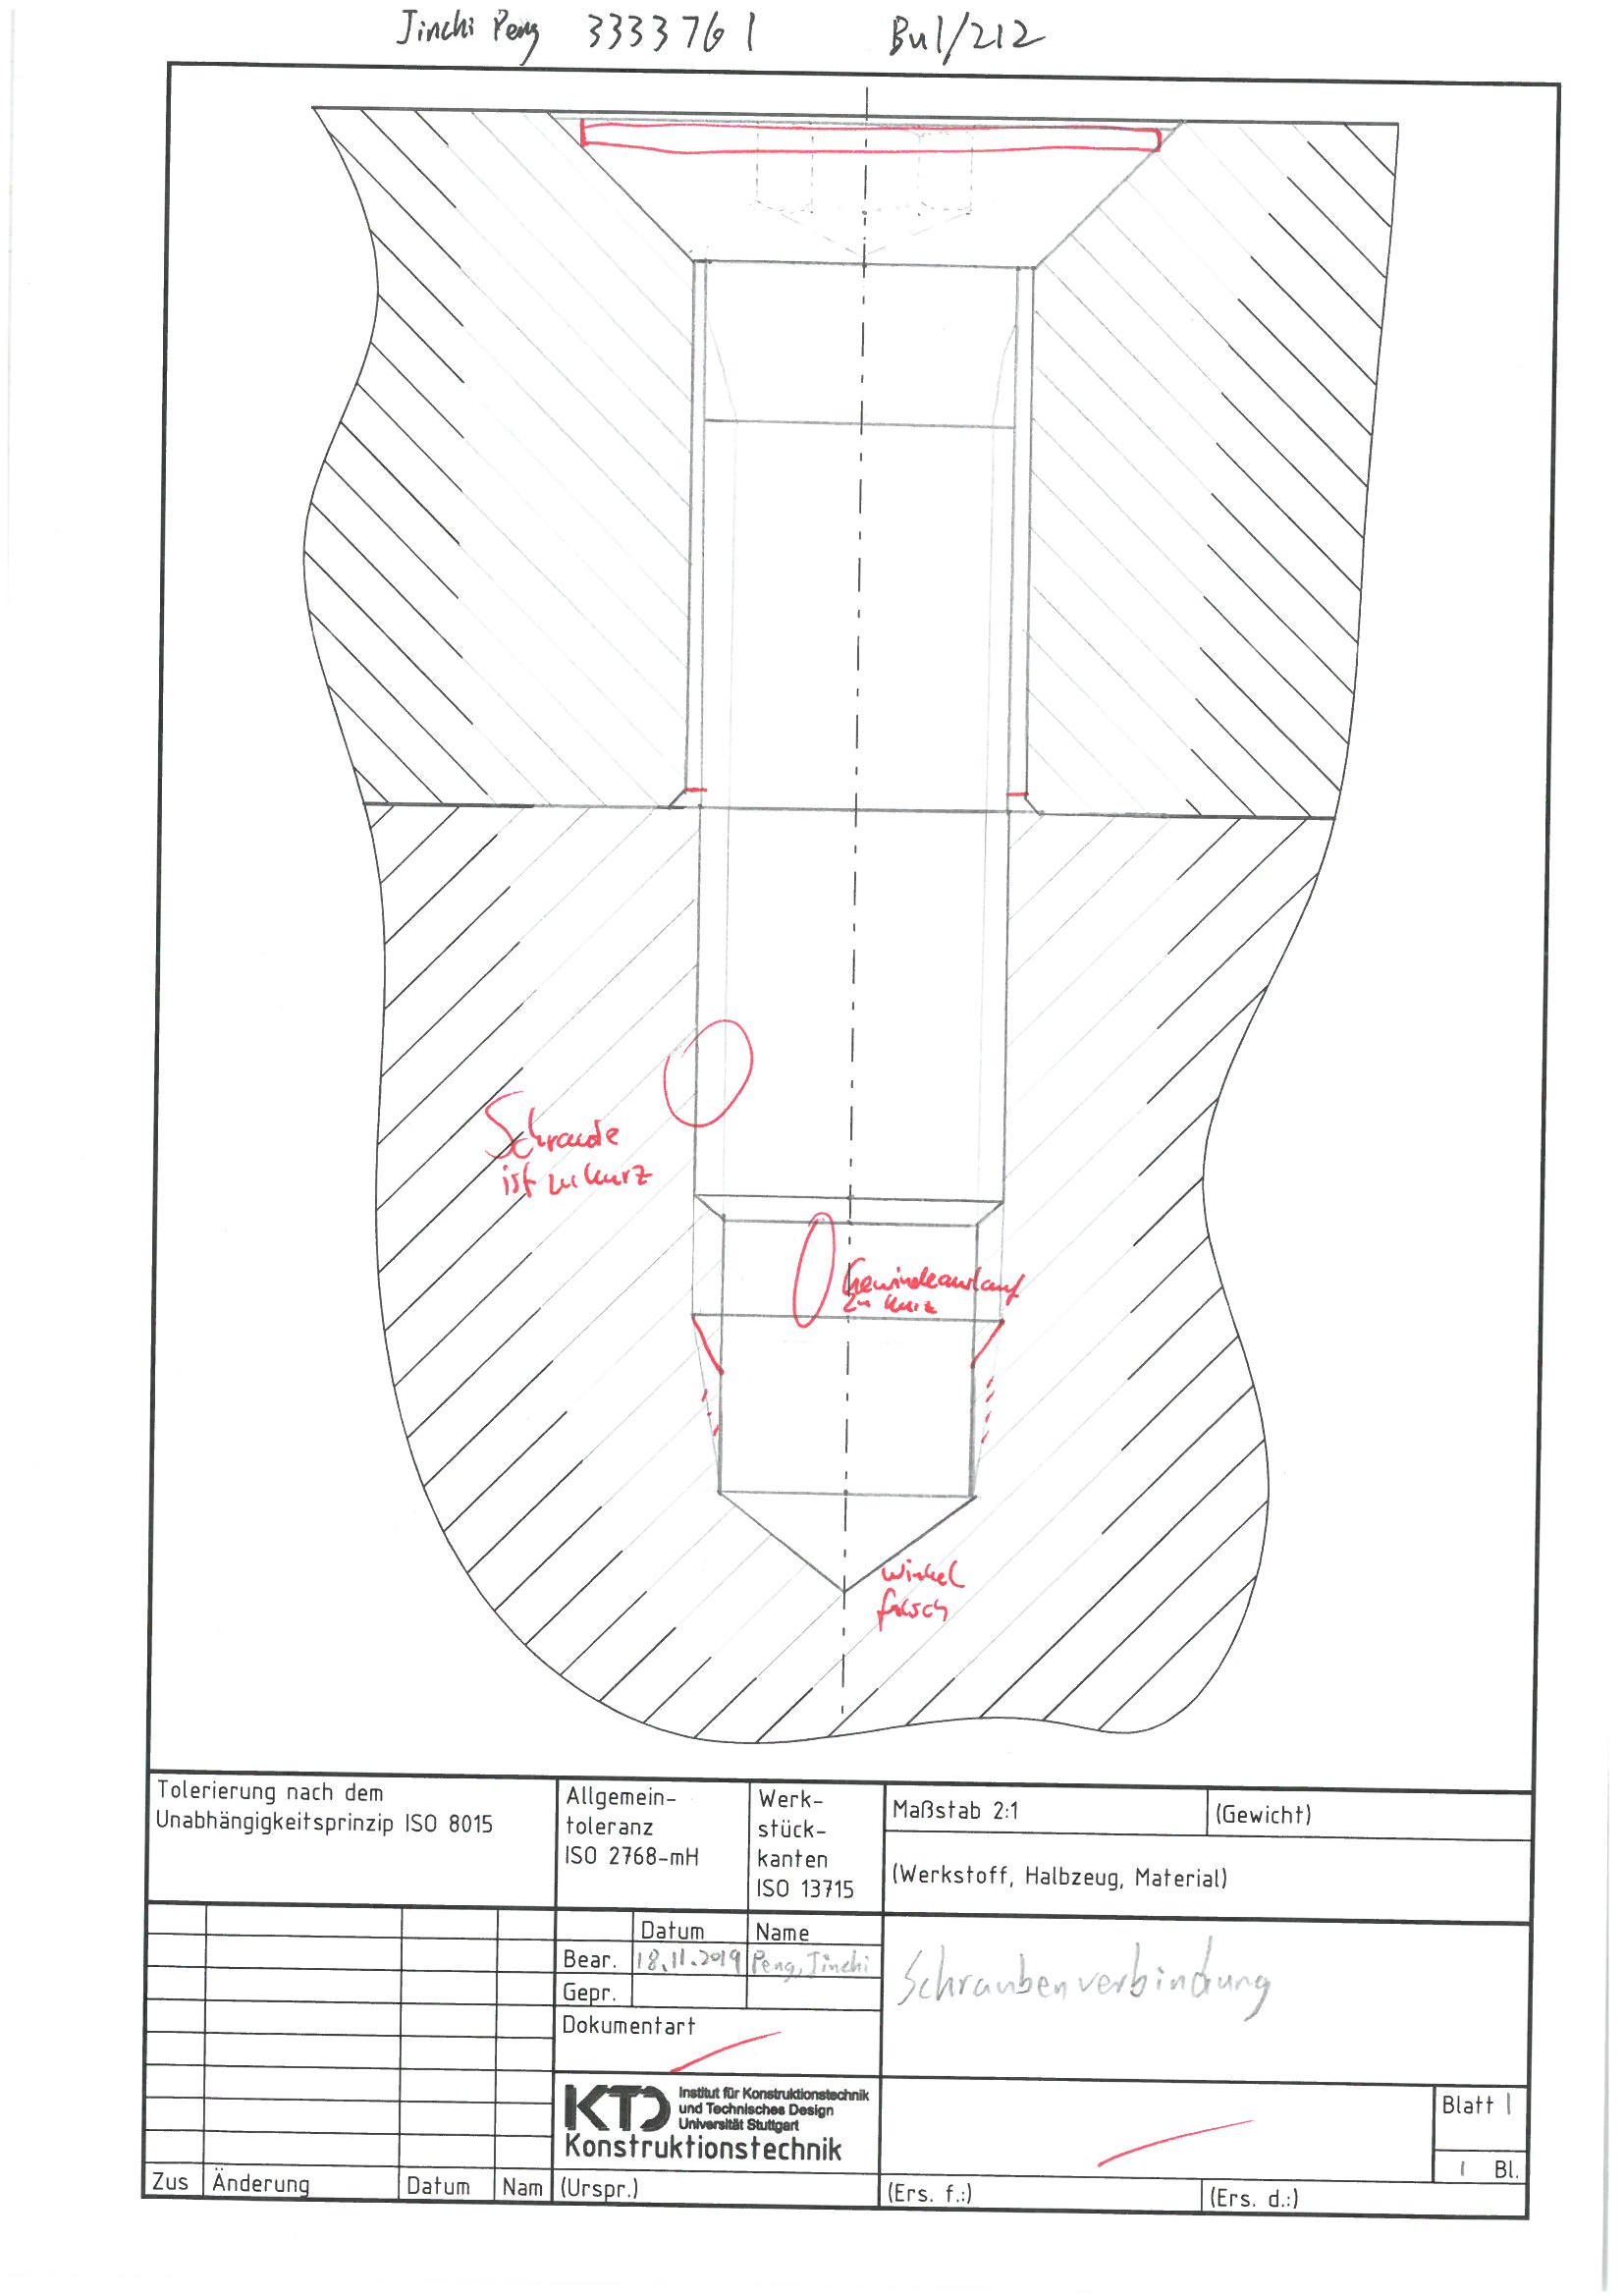 Jinchi Peng 3333761 Bu1/212
Schraube
ist zu kurz
Gewindeauslauf
zu kurz
Winkel
falsch
Tolerierung nach dem
Unabhängigkeitsprinzip ISO 8015
Allgemein-
toleranz
ISO 2768-mH
Werk-
stück-
kanten
ISO 13715
Maßstab 2:1
(Gewicht)
(Werkstoff, Halbzeug, Material)
Datum Name
Bear. 18.11.2019 Peng, Jinchi
Gepr.
Dokumentart
Schraubenverbindung
KTD
Institut für Konstruktionstechnik
und Technisches Design
Universität Stuttgart
Konstruktionstechnik
Blatt 1
1 Bl.
Zus Änderung Datum Nam (Urspr.) (Ers. f.:) (Ers. d.:)